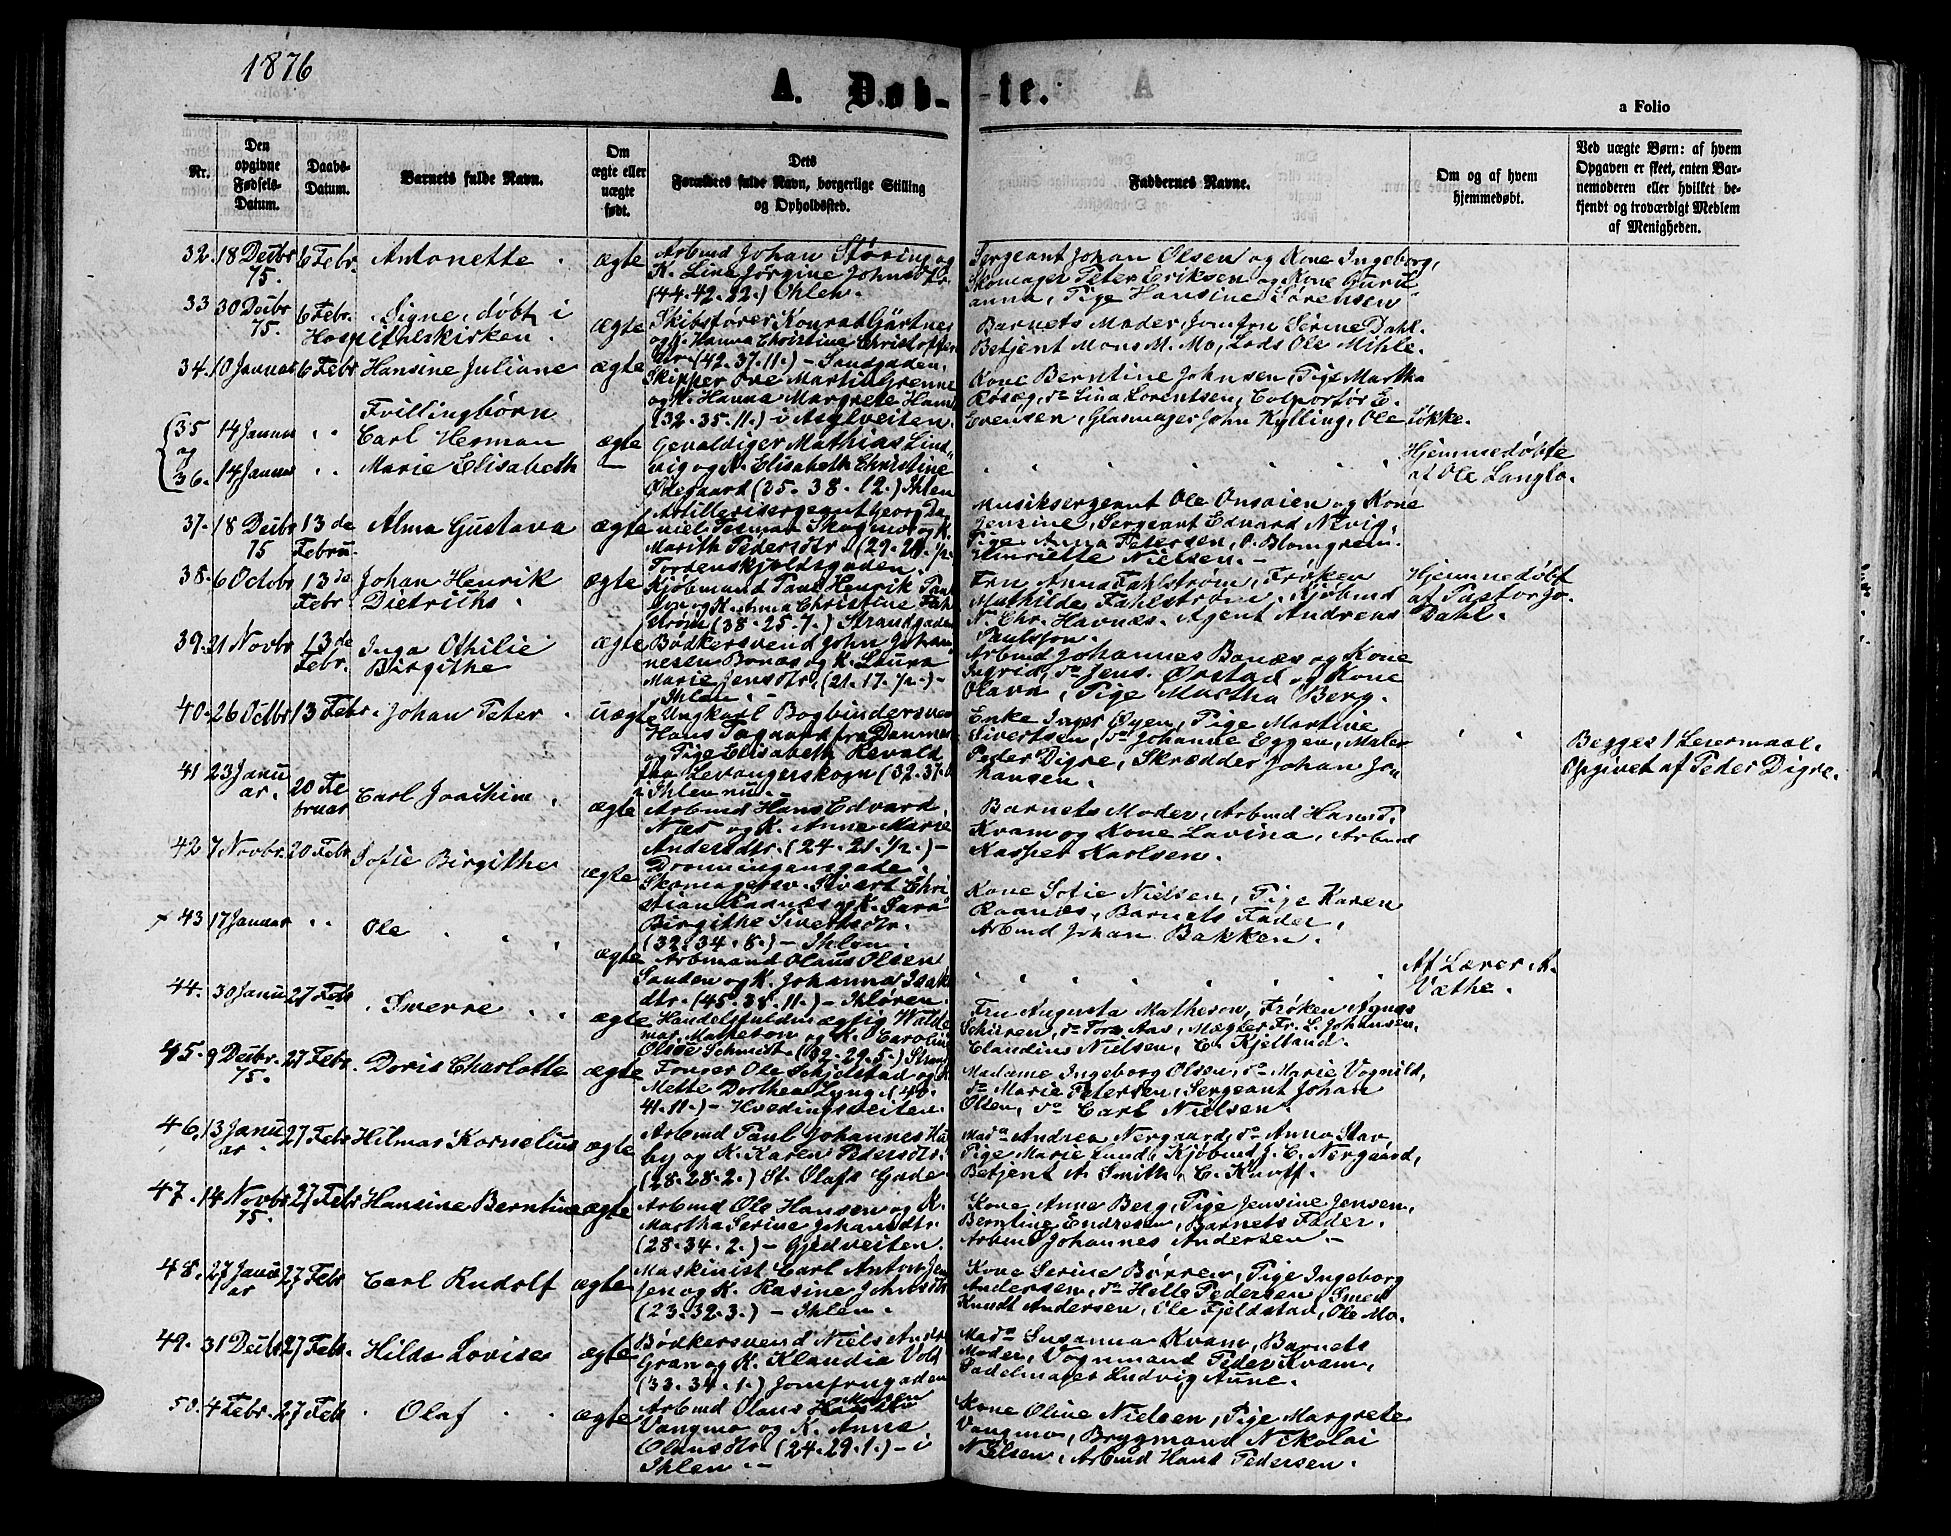 1876
A. Døb-
-te.
a Folio
Nr.
Den
opgivne
Fødsels-
Datum.
Daabs-
Datum.
Barnets fulde Navn.
Om
ægte eller
uægte
født.
Dets
Forældres fulde Navn, borgerlige Stilling
og Opholdssted.
Faddernes Navne.
Om og af hvem
hjemmedøbt.
Ved uægte Børn: af hvem
Opgaven er skeet, enten Bar-
nemoderen eller hvilket be-
kjendt og troværdigt Medlem
af Menigheden.
32. 18 Decbr 75. 6 Febr. Antonette ægte
Arbmd Johan Støring og
K. Line Jørgine Johnsdtr
(44.42.22.) Ihlen.
Sergeant Johan Olsen og Kone Ingeborg,
Skomager Peter Eriksen og Kone Guru
anna, Pige Hansine Sørensen
33 30 Decbr 75. 6 Febr. Signe, døbt i
Hospitalskirken. ægte
Skibsfører Konrad Gärtner
og K. Hanna Christine Christoffer
(42.37.11.) - Sandgaden.
Barnets Moder, Jomfru Serine Dahl.
Betjent Mons M. Mo, Lods Ole Mihle.
34. 10 Januar 6 Febr Hansine Juliane ægte
Skipper Ove Martin Grenne
og K. Hanna Margrete Hans
(32.35.11.) i Asylveiten.
Kone Berntine Johnsen, Pige Martha
Rosæg, do Lina Lorentsen, Colportør E.
Evensen, Glasmager John Kylling, Ole Løkke.
35 14 Januar Tvillingbørn
Carl Herman ægte
og
36. 14 Januar Marie Elisabeth
Gevaldiger Mathias Lind-
vig og K. Elisabeth Christine
Ødegaard (35.38.12.) Ihlen
Hjemmedøbte
af Ole Langlo.
37. 18 Decbr 75 13de Febru. Alma Gustava ægte
Artillerisergeant Georg Da
niel Tesman Skogmo og K.
Marith Pedersdtr. (29.28.½.
Tordenskjoldsgaden.
Musiksergeant Ole Onsøien og Kone
Jensine, Sergeant Edvard Nevig,
Pige Anna Petersen, O. Blomgren.
Henriette Nielsen.
38. 6 Octobr 13de Febr Johan Henrik
Dietrichs. ægte
Kjøbmand Paul Henrik Paul
son og K. Anna Christine Fahl
strøm (38.25.7.) Strandgaden
Fru Anna Fahlstrøm, Frøken
Mathilde Fahlstrøm, Kjøbmd
N. Chr. Havnæs. Agent Andreas
Paulsson.
Hjemmedøbt
af Pastor Jo.
Dahl.
39. 21 Novbr 13de Febr. Inga Othilie
Birgithe ægte
Bødkersvend John Johan
nesen Bonas og K. Laura
Marie Jensdtr. (21.17.½.) -
Ihlen.
Arbmd Johannes Bonæs og Kone
Ingrid, do Jens Ørstad og Kone
Olava, Pige Martha Berg.
40. 26 Octbr 13 Febr. Johan Peter uægte
Ungkarl Bogbindersvend
Hans Tagaard fra Danmark
og Pige Elisabeth Revald
fra Levangerskogn (32.31.
Ihlen nu.
Enke Inger Øyen, Pige Martine
Sivertsen, do Johanne Eggen, Maler
Peder Digre, Skrædder Johan Jo-
hansen.
Begges 1 Leiermaal.
Opgivet af Peder Digre.
41 23 Janu ar. 20 Fe bruar Carl Joachim. ægte
Arbmd Hans Edvard
Næs og K. Anne Marie
Andersdtr. (24.21.½.) -
Dronningensgade.
Barnets Moder, Arbmd Hans P.
Kvam og Kone Lavina, Arbmd
Kasper Karlsen.
42 7 Novbr. 20 Febr Sofie Birgithe ægte
Skomagersv. Sivert Chri
stian Raanæs og K. Sara
Birgithe Sivertsdtr.
(32.34.8.) - Ihlen.
Kone Sofie Nielsen, Pige Karen
Raanæs, Barnets Fader,
Arbmd Johan Bakken.
+ 43 17 Januar Ole ægte
Arbmand Olaus Olsen
Sanden og K. Johanna Isaks
dtr. (45.38.11.) - Ihløren.
Af Lærer A.
Væthe.
44. 30 Janu 27 Febr Sverre ægte
Handelsfuldmægtig Walde
mar Matheson og K. Caroline
Olsøe Schmidt. (32.29.5.) Strand
Fru Augusta Matheson, Frøken Agnes
Schiren, do Tora Aas, Mægler Fr. L. Johansen,
Claudius Nielsen, C. Kjelland.
45. 9 Decbr 75. 27 Febr. Doris Charlotte ægte
Ole Schjelstad og K
Mette Dorthea Lyng. (40.
41.11.) - Hvedingsveiten.
Madame Ingeborg Olsen, do Marie Vognild,
do Marie Petersen, Sergeant Johan
Olsen, do Carl Nielsen.
46. 13 Janu ar 27 Febr Hilmar Kornelius ægte
Arbmd Paul Johannes Hus
by og K. Karen Petersdtr.
(28.28.2.) St. Olafs Gade
Mada Andrea Nergaard, do Anna Stav,
Pige Marie Lund, Kjøbmd J. C. Nergaard,
Betjent A. Smith, C. Kroff.
47. 14 Novbr 75. 27 Febr Hansine Berntine ægte
Arbmd Ole Hansen og K.
Martha Serine Johansdtr.
(28.34.2.) - Gjedveiten.
Kone Anne Berg, Pige Jensine Jensen,
Berntine Endresen, Barnets Fader.
Arbmd Johannes Andersen. -
48. 27 Janu ar 27 Febr Carl Rudolf ægte
Maskinist Carl Anton Jen
sen og K. Rasine Johnsdtr
(23.32.3.) - Ihlen.
Kone Serine Børren, Pige Ingeborg
Andersen, do Helle Pedersen, Smed
Knudt Andersen, Ole Fjeldstad, Ole Mo.
49. 31 Decbr 27 Febr. Hilda Lovise ægte
Bødkersvend Niels Andr.
Gran og K. Klaudia Vold
(33.34.1.) Jomfrugaden
Mada Susanna Kvam, Barnets
Moder, Vognmand Peder Kvam,
Sadelmager Ludvig Aune.
50. 4 Febr. 27 Feb Olaf ægte
Arbmd Olaus
Vangmo og K. Anna
Olausdtr. (24.29.1.) - i
Ihlen. -
Kone Oline Nielsen, Pige Margrete
Vangmo, Brygmand Nikolai
Nielsen, Arbmd Hans Pedersen.